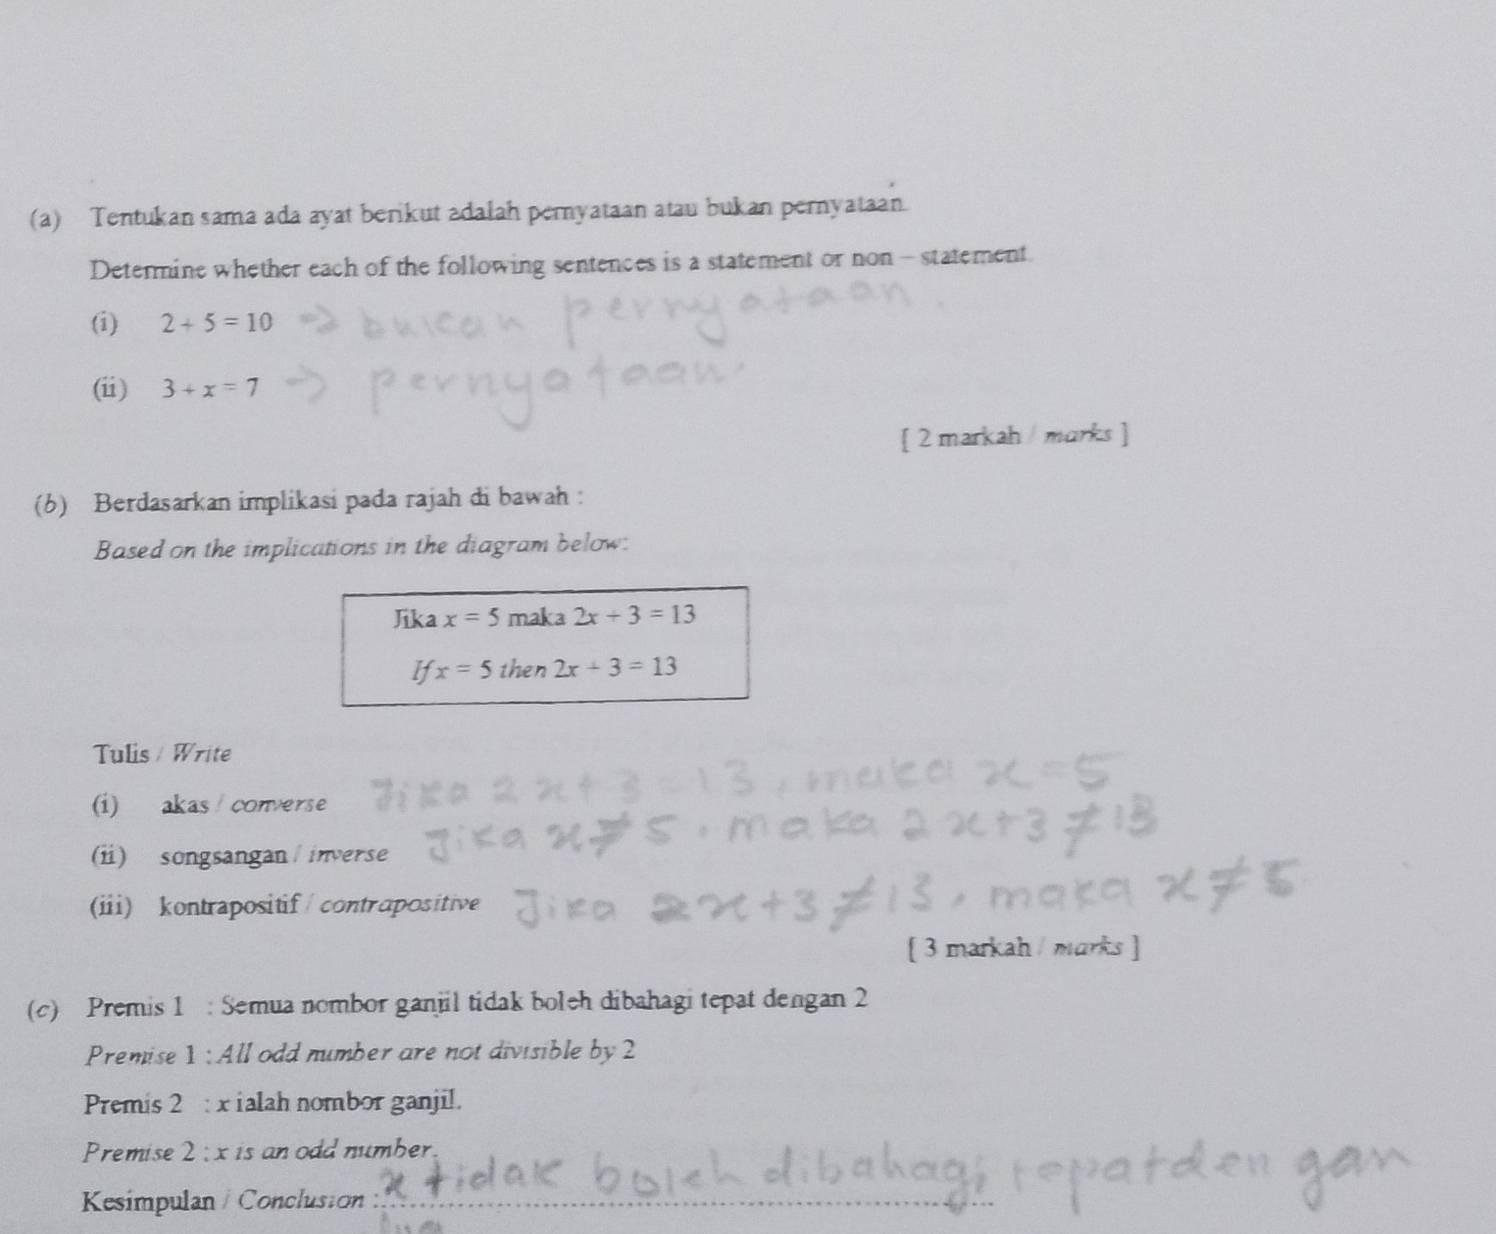 (a) Tentukan sama ada ayat berikut adalah pernyataan atau bukan pernyataan.
Determine whether each of the following sentences is a statement or non - statement.
(i) 2 + 5 = 10 → bukan pernyataan.
(ii) 3 + x = 7 → pernyataan.
[ 2 markah / marks ]
(b) Berdasarkan implikasi pada rajah di bawah :
Based on the implications in the diagram below:
Jika x = 5 maka 2x + 3 = 13
If x = 5 then 2x + 3 = 13
Tulis / Write
(i) akas / converse Jika 2x + 3 = 13, maka x = 5
(ii) songsangan / inverse Jika x ≠ 5, maka 2x + 3 ≠ 13
(iii) kontrapositif / contrapositive Jika 2x + 3 ≠ 13, maka x ≠ 5
[ 3 markah / marks ]
(c) Premis 1 : Semua nombor ganjil tidak boleh dibahagi tepat dengan 2
Premise 1 : All odd number are not divisible by 2
Premis 2 : x ialah nombor ganjil.
Premise 2 : x is an odd number.
Kesimpulan / Conclusion : x tidak boleh dibahagi tepat dengan
dua